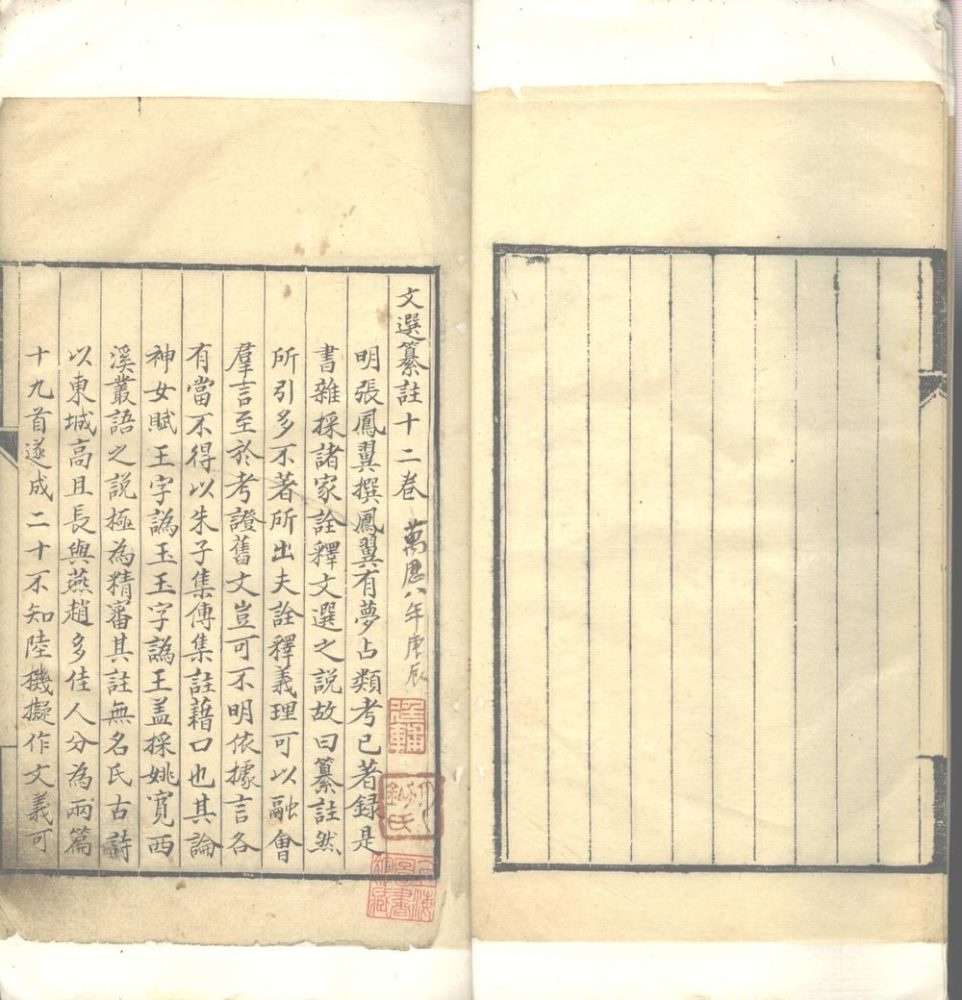 文選纂註十二卷 萬曆八年庚辰
明張鳳翼撰鳳翼有夢占類考已著録是
書雜採諸家詮釋文選之説故曰纂註然
所引多不著所出夫詮釋義理可以融會
羣言至於考證舊文豈可不明依據言各
有當不得以朱子集傳集註藉口也其論
神女賦王字譌玉玉字譌王盖採姚寛西
溪叢語之説極為精審其註無名氏古詩
以東城高且長與燕趙多佳人分為兩篇
十九首遂成二十不知陸機擬作文義可